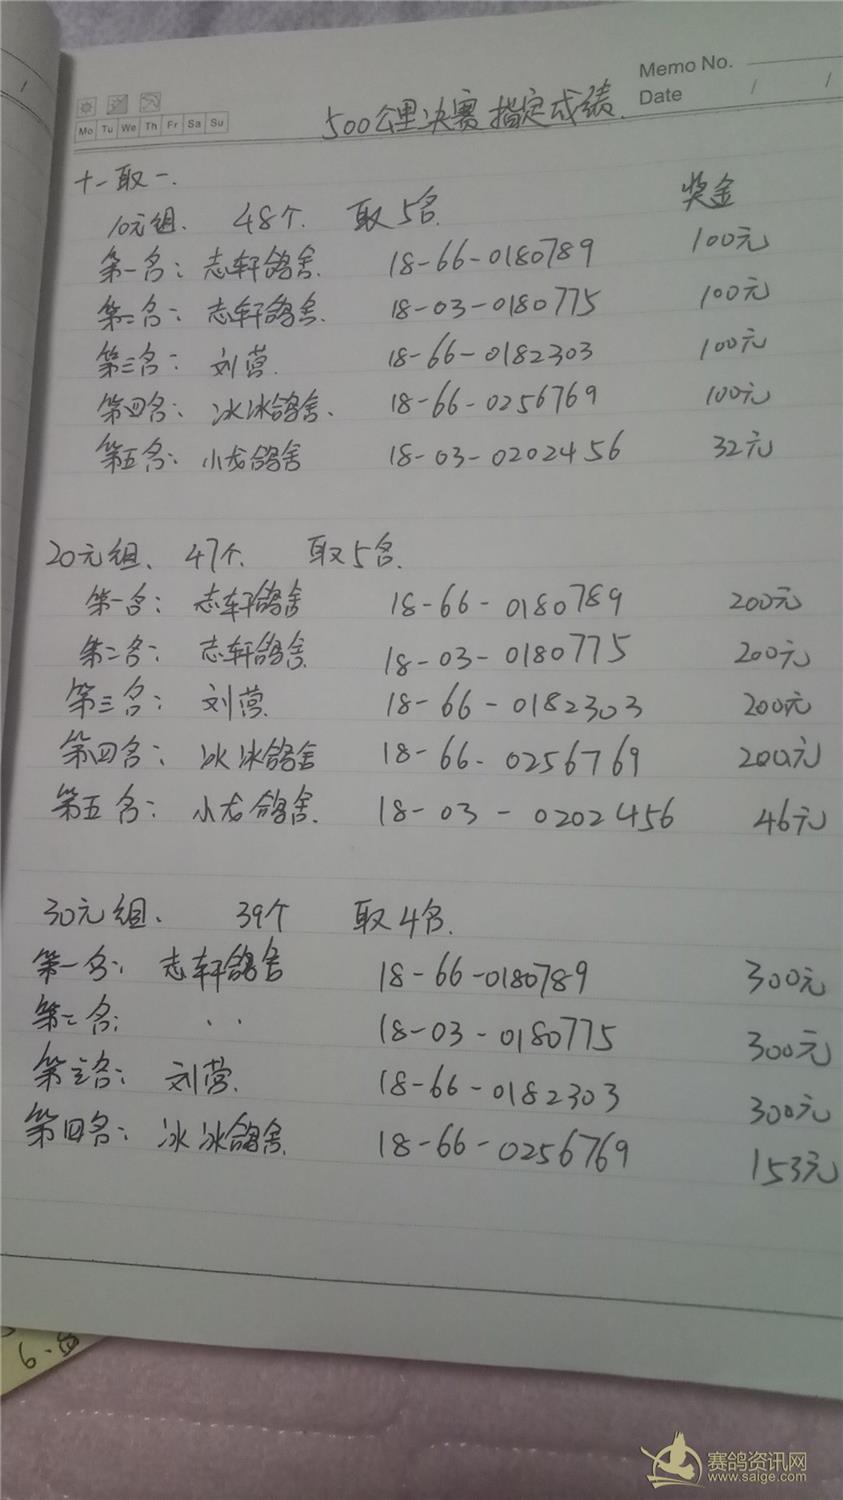 Memo No.
Mo Tu We Th Fr Sa Su
Date / /
500公里决赛指定成绩.
十一取一.
10元组. 48个. 取5名. 奖金
第一名: 志轩鸽舍. 18-66-0180789 100元
第二名: 志轩鸽舍. 18-03-0180775 100元
第三名: 刘营. 18-66-0182303 100元
第四名: 冰冰鸽舍. 18-66-0256769 100元
第五名: 小龙鸽舍 18-03-0202456 32元
20元组、 47个. 取5名.
第一名: 志轩鸽舍 18-66-0180789 200元
第二名: 志轩鸽舍. 18-03-0180775 200元
第三名: 刘营. 18-66-0182303 200元
第四名: 冰冰鸽舍 18-66-0256769 200元
第五名: 小龙鸽舍. 18-03-0202456 46元
30元组、 39个 取4名.
第一名: 志轩鸽舍 18-66-0180789 300元
第二名: . . 18-03-0180775 300元
第三名: 刘营. 18-66-0182303 300元
第四名: 冰冰鸽舍. 18-66-0256769 153元
赛鸽资讯网
www.saige.com